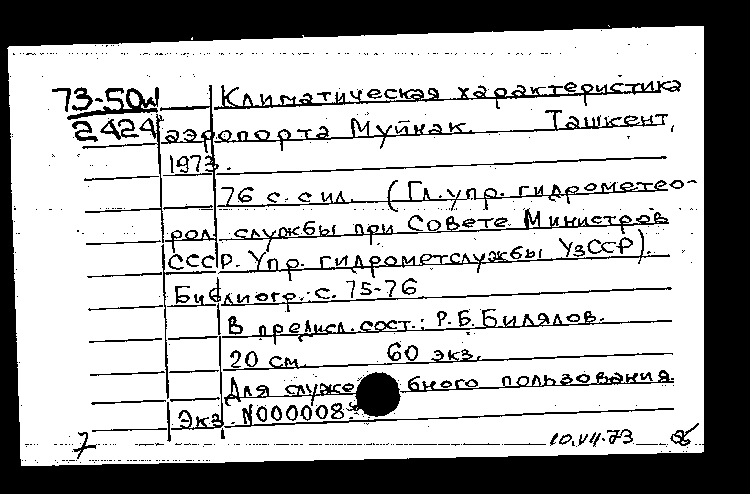 73-50и Климатическая характеристика
2424 аэропорта Муйнак. Ташкент,
1973.
76 с. с ил. (Гл. упр. гидрометео-
рол. службы при Совете Министров
СССР. Упр. гидрометслужбы УзССР).
Библиогр.: с. 75-76
В предисл. сост.: Р.Б. Билялов.
20 см. 60 экз.
Для служебного пользования
Экз. N000008
7 10.VII.73